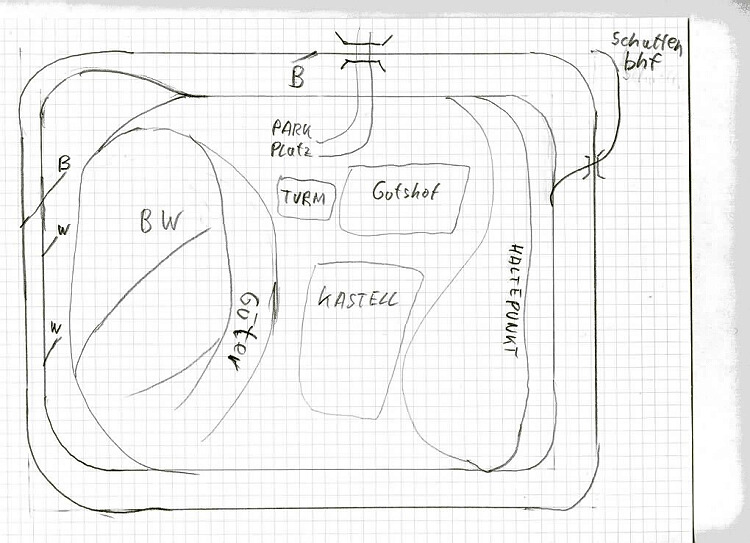 Schatten
bhf
B
PARK
Platz
B
TURM
Gutshof
BW
W
HALTEPUNKT
KASTELL
Güter
W